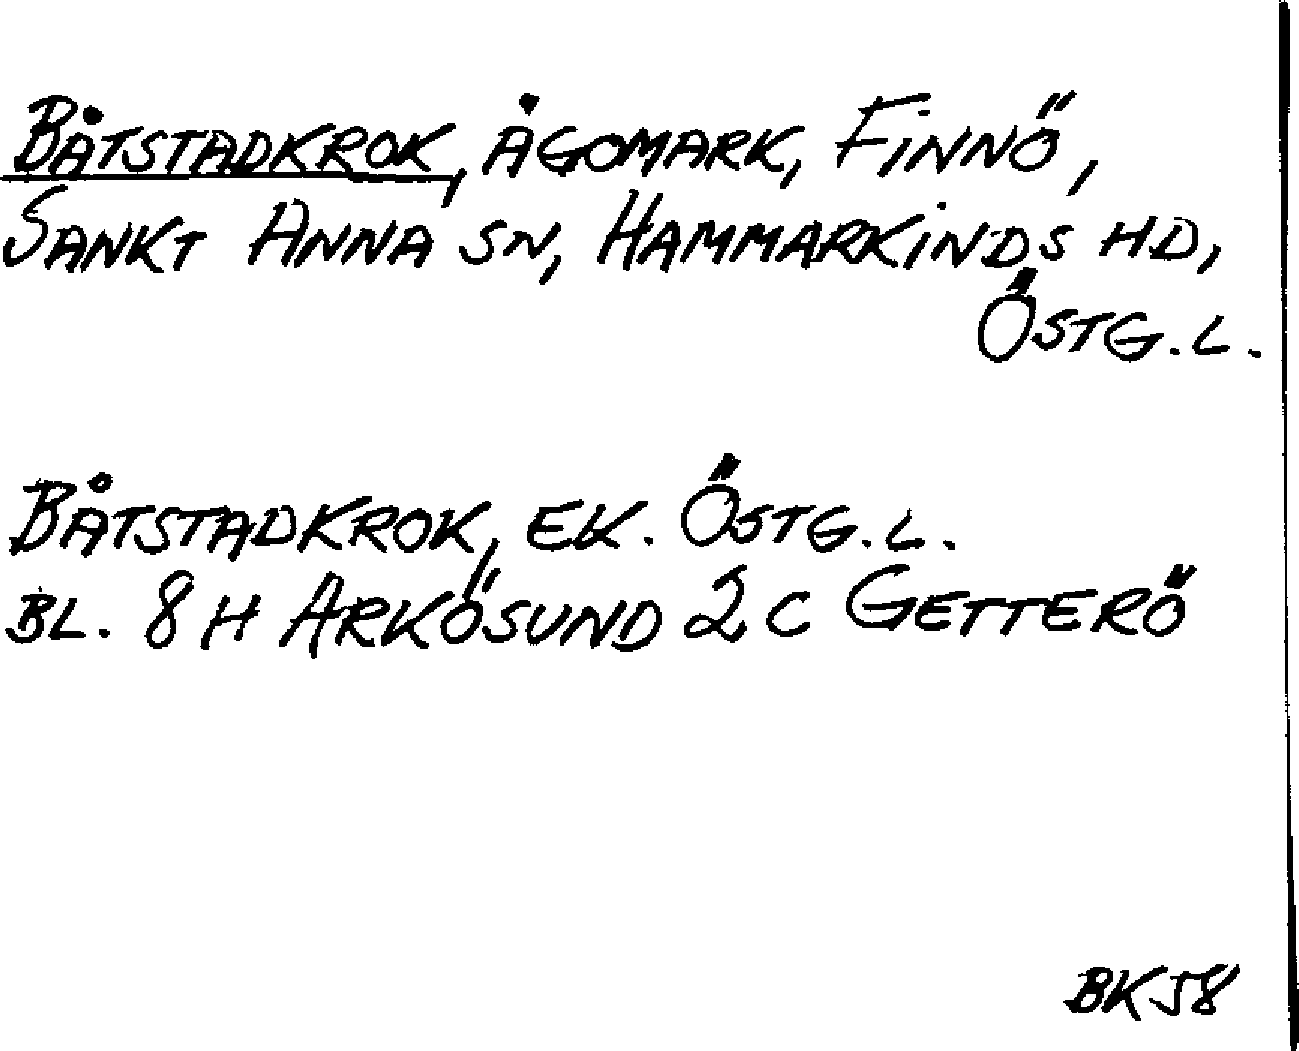 BÅTSTADKROK, ÅGOMARK, FINNÖ,
SANKT ANNA SN, HAMMARKINDS HD,
ÖSTG.L.
BÅTSTADKROK, EK. ÖSTG.L.
BL. 8H ARKÖSUND 2C GETTERÖ
BK58